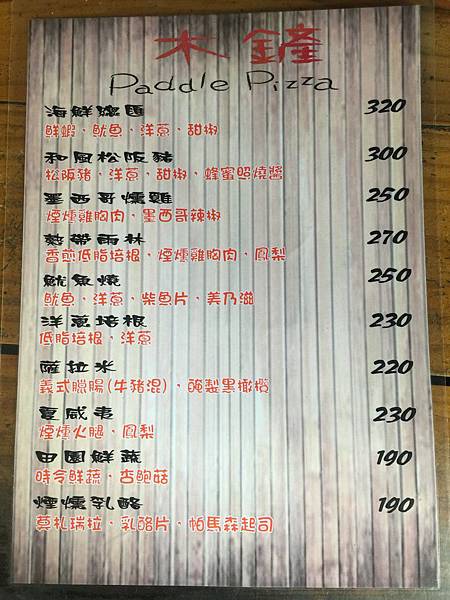 木鏟
Paddle Pizza
海鮮總匯 320
鮮蝦、魷魚、洋蔥、甜椒
和風松阪豬 300
松阪豬、洋蔥、甜椒、蜂蜜照燒醬
墨西哥燻雞 250
煙燻雞胸肉、墨西哥辣椒
熱帶雨林 270
香煎低脂培根、煙燻雞胸肉、鳳梨
魷魚燒 250
魷魚、洋蔥、柴魚片、美乃滋
洋蔥培根 230
低脂培根、洋蔥
薩拉米 220
義式臘腸(牛豬混)、醃製黑橄欖
夏威夷 230
煙燻火腿、鳳梨
田園鮮蔬 190
時令鮮蔬、杏鮑菇
煙燻乳酪 190
莫札瑞拉、乳酪片、帕馬森起司